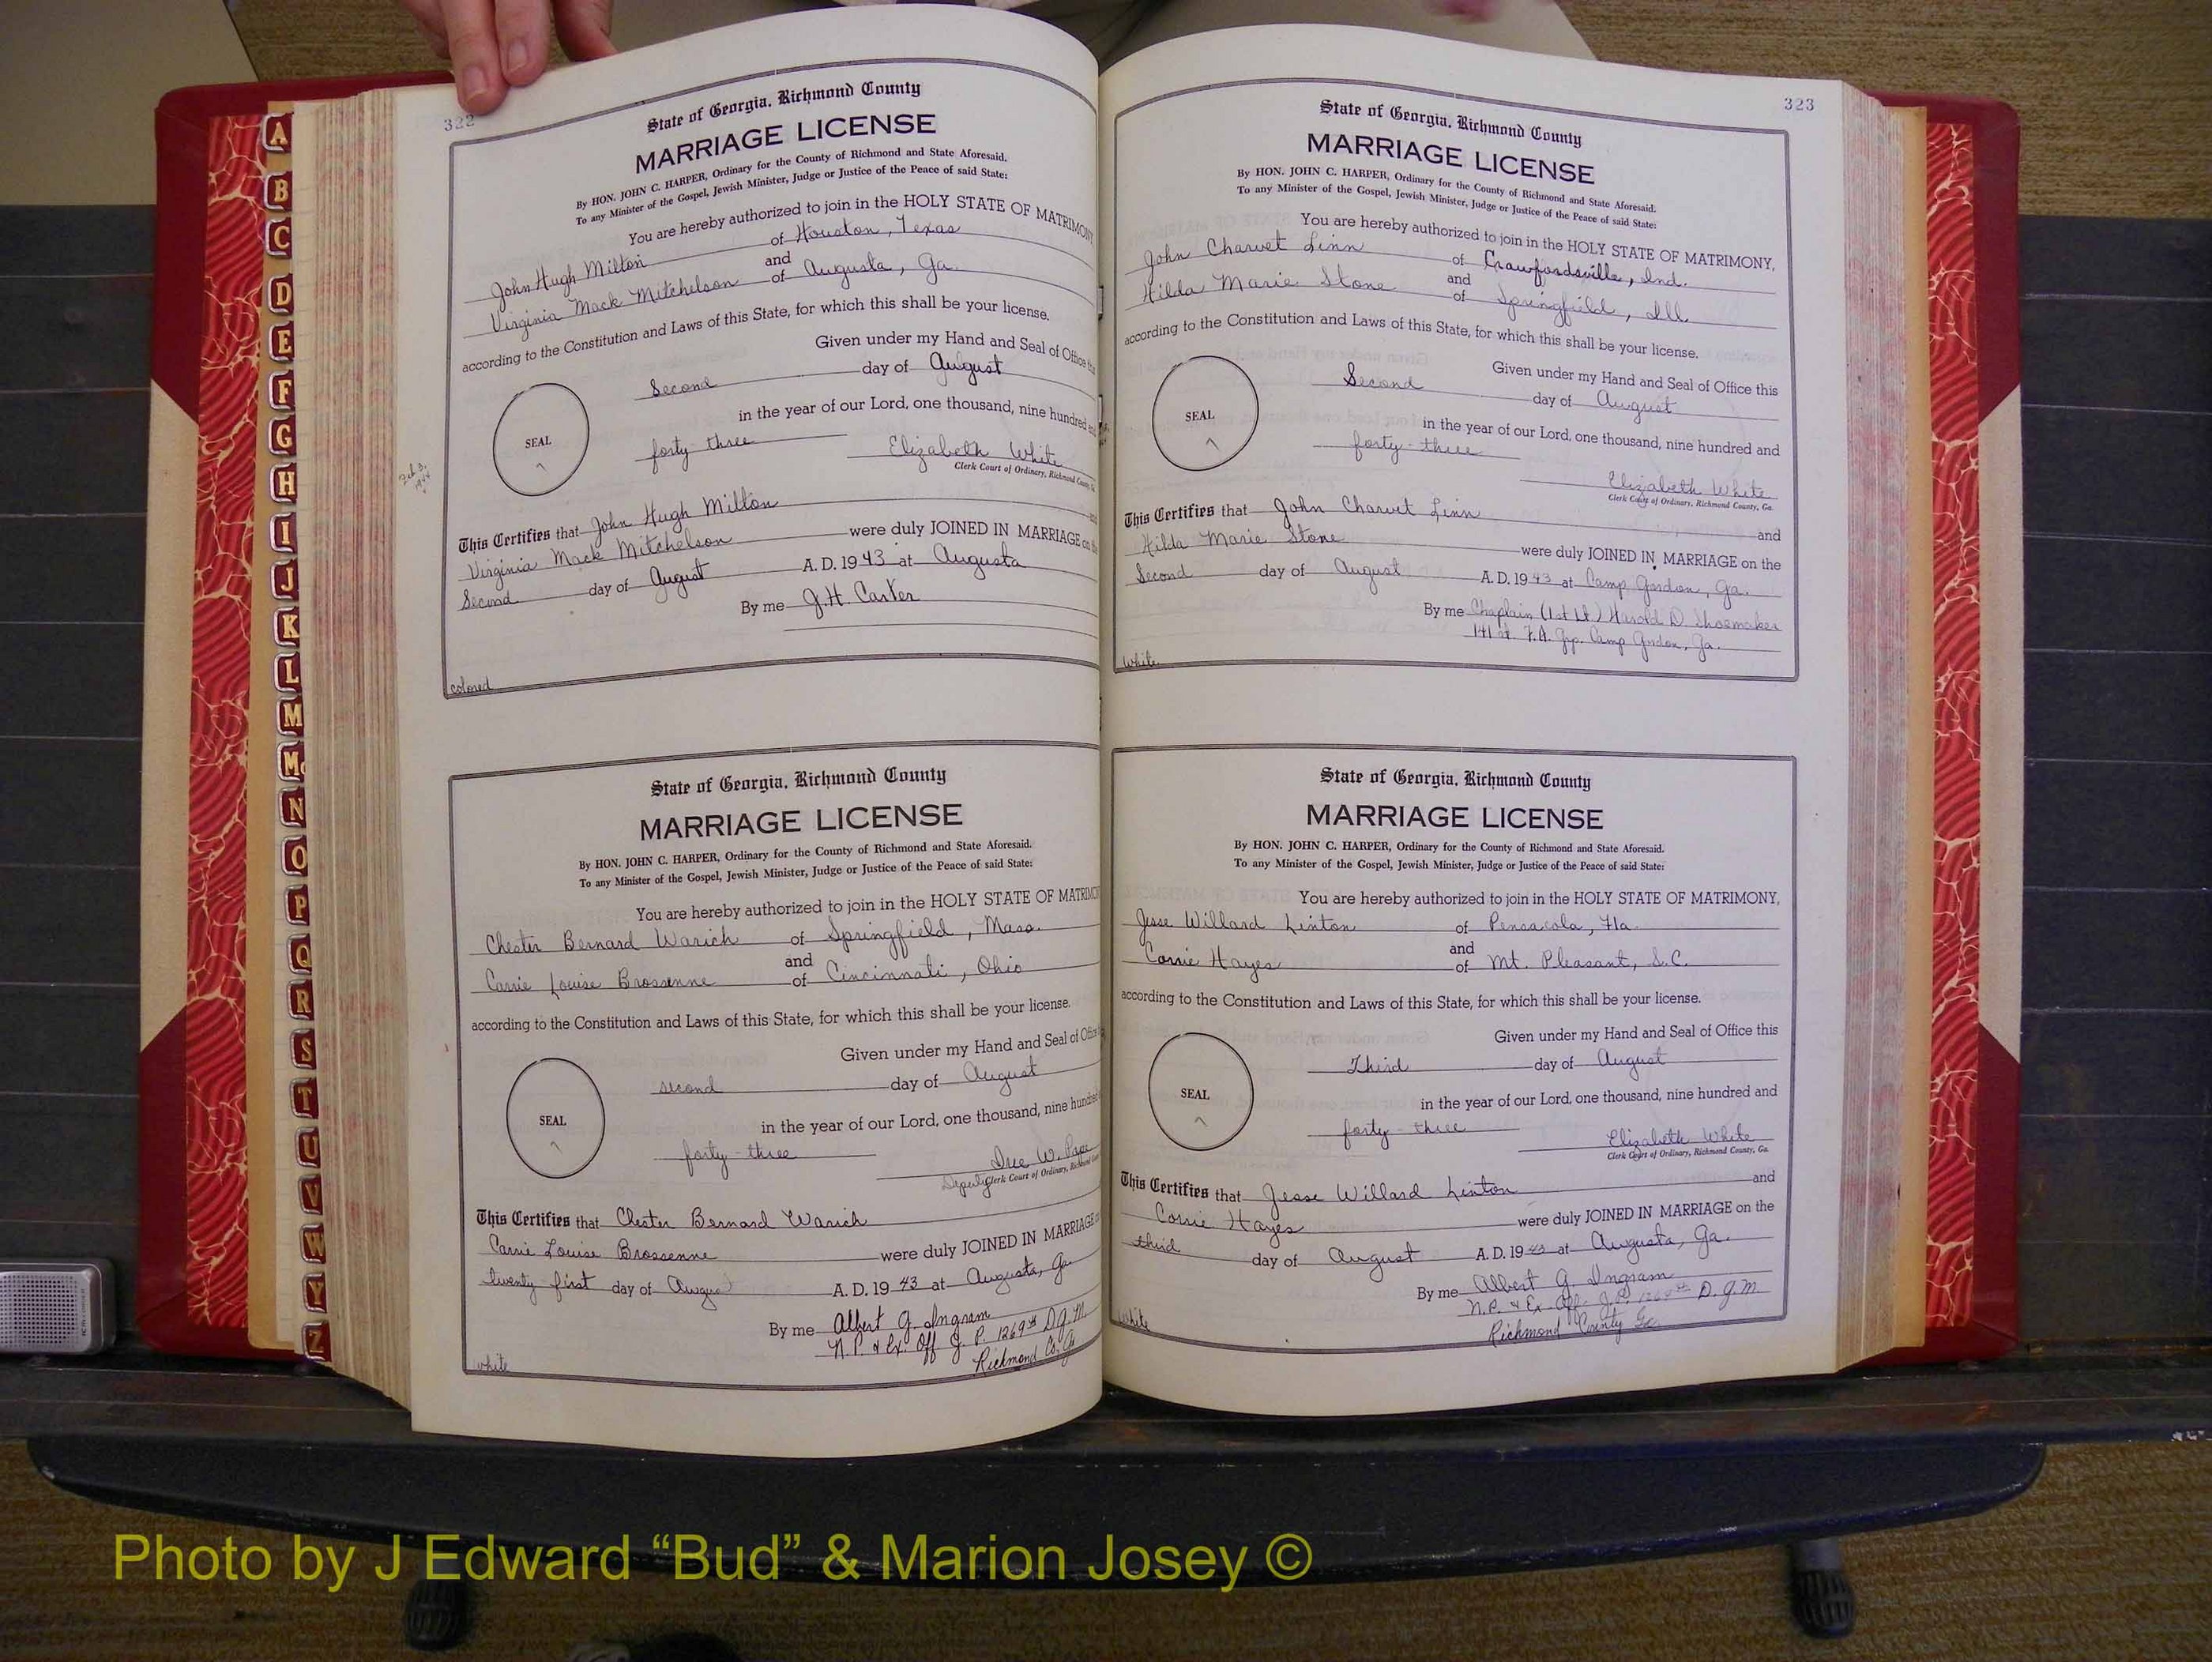 322
State of Georgia, Richmond County
MARRIAGE LICENSE
By HON. JOHN C. HARPER, Ordinary for the County of Richmond and State Aforesaid.
To any Minister of the Gospel, Jewish Minister, Judge or Justice of the Peace of said State:
You are hereby authorized to join in the HOLY STATE OF MATRIMONY,
John Hugh Milton of Houston, Texas
and
Virginia Mack Mitchelson of Augusta, Ga.
according to the Constitution and Laws of this State, for which this shall be your license.
Given under my Hand and Seal of Office this
Second day of August
in the year of our Lord, one thousand, nine hundred and
SEAL
forty-three
Elizabeth White
Clerk Court of Ordinary, Richmond County, Ga.
This Certifies that John Hugh Milton and
Virginia Mack Mitchelson were duly JOINED IN MARRIAGE on the
Second day of August A. D. 1943 at Augusta
By me J.H. Carter
colored
State of Georgia, Richmond County
MARRIAGE LICENSE
By HON. JOHN C. HARPER, Ordinary for the County of Richmond and State Aforesaid.
To any Minister of the Gospel, Jewish Minister, Judge or Justice of the Peace of said State:
You are hereby authorized to join in the HOLY STATE OF MATRIMO
Chester Bernard Warich of Springfield, Mass.
and
Carrie Louise Brossenne of Cincinnati, Ohio
according to the Constitution and Laws of this State, for which this shall be your license.
Given under my Hand and Seal of Office
second day of August
in the year of our Lord, one thousand, nine hundred
SEAL
forty-three
W. Pape
Deputy Clerk Court of Ordinary, Richmond
This Certifies that Chester Bernard Warich
Carrie Louise Brossenne were duly JOINED IN MARRIAGE
twenty first day of August A. D. 1943 at Augusta, Ga.
By me Albert G. Ingram
N.P. & Ex. Off J. P. 1269th D.G.M.
Richmond Co. Ga
white
323
State of Georgia, Richmond County
MARRIAGE LICENSE
By HON. JOHN C. HARPER, Ordinary for the County of Richmond and State Aforesaid.
To any Minister of the Gospel, Jewish Minister, Judge or Justice of the Peace of said State:
You are hereby authorized to join in the HOLY STATE OF MATRIMONY,
John Charvet Linn of Crawfordsville, Ind.
and
Hilda Marie Stone of Springfield, Ill.
according to the Constitution and Laws of this State, for which this shall be your license.
Given under my Hand and Seal of Office this
Second day of August
in the year of our Lord, one thousand, nine hundred and
SEAL
forty-three
Elizabeth White
Clerk Court of Ordinary, Richmond County, Ga.
This Certifies that John Charvet Linn and
Hilda Marie Stone were duly JOINED IN MARRIAGE on the
Second day of August A. D. 1943 at Camp Gordon, Ga.
By me Chaplain (1st Lt) Harold D. Shoemaker
141st F.A. Gp. Camp Gordon, Ga.
White
State of Georgia, Richmond County
MARRIAGE LICENSE
By HON. JOHN C. HARPER, Ordinary for the County of Richmond and State Aforesaid.
To any Minister of the Gospel, Jewish Minister, Judge or Justice of the Peace of said State:
You are hereby authorized to join in the HOLY STATE OF MATRIMONY,
Jesse Willard Linton of Pensacola, Fla.
and
Corrie Hayes of Mt. Pleasant, S.C.
according to the Constitution and Laws of this State, for which this shall be your license.
Given under my Hand and Seal of Office this
Third day of August
in the year of our Lord, one thousand, nine hundred and
SEAL
forty-three
Elizabeth White
Clerk Court of Ordinary, Richmond County, Ga.
This Certifies that Jesse Willard Linton and
Corrie Hayes were duly JOINED IN MARRIAGE on the
third day of August A. D. 1943 at Augusta, Ga.
By me Albert G. Ingram
N.P. & Ex-Off. J.P. 1269th D.G.M.
Richmond County Ga
white
A
B
C
D
E
F
G
H
I
J
K
L
M
Mc
N
O
P
Q
R
S
T
U
V
W
Y
Z
Photo by J Edward “Bud” & Marion Josey ©